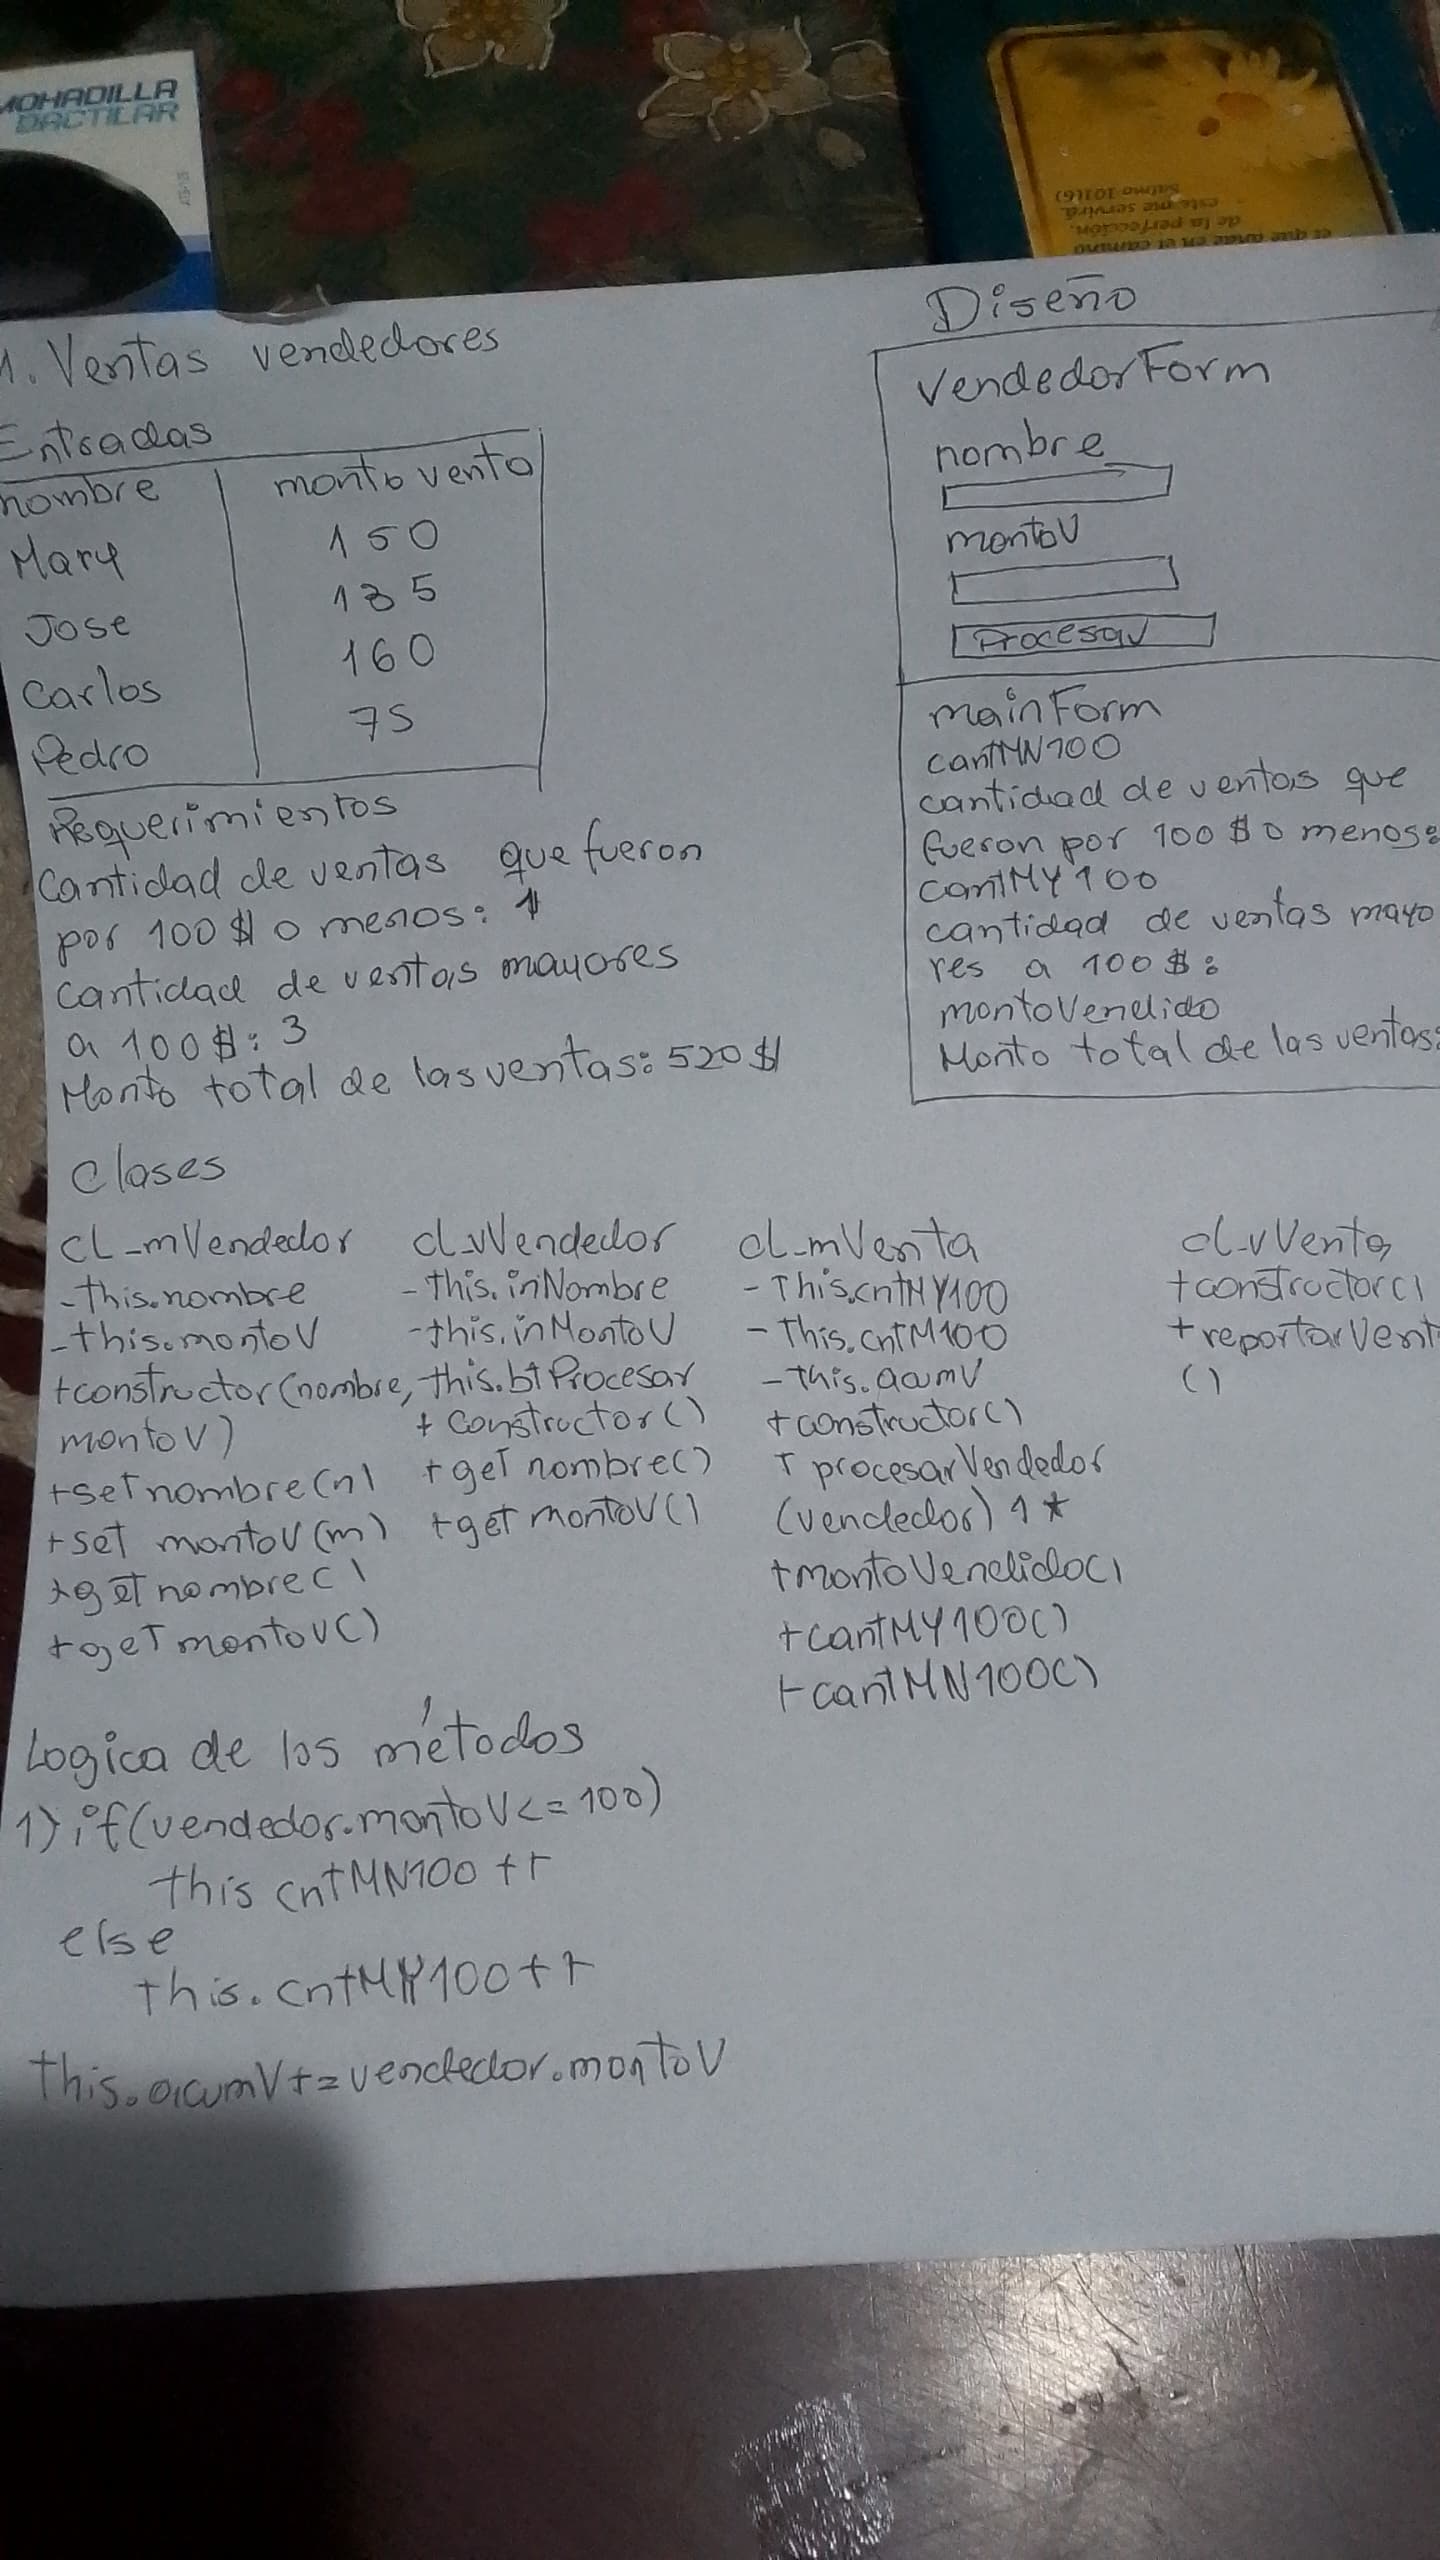 MOHADILLA
DACTILAR
Salmo 101:6)
este me servirá.
de la perfección,
el que ande en el camino
1. Ventas vendedores
Entradas
nombre monto vento
Mary 150
Jose 135
Carlos 160
Pedro 75
Requerimientos
Cantidad de ventas que fueron
por 100 $ o menos: 1
Cantidad de ventas mayores
a 100 $: 3
Monto total de las ventas: 520 $
Diseño
VendedorForm
nombre
montoV
Procesar
mainForm
cantMN100
cantidad de ventas que
fueron por 100 $ o menos:
cantMY100
cantidad de ventas mayo
res a 100 $:
montoVendido
Monto total de las ventas:
Clases
CL_mVendedor
-this.nombre
-this.montoV
+constructor(nombre,
montoV)
+set nombre(n)
+set montoV(m)
+get nombre()
+get montoV()
cl_vVendedor
-this.inNombre
-this.inMontoV
this.btProcesar
+ constructor()
+get nombre()
+get montoV()
cl_mVenta
-This.cntMY100
-This.cntM100
-This.acumV
+constructor()
+procesarVendedor
(vendedor) 1*
+montoVendido()
+cantMY100()
+cantMN100()
cl_vVenta
+constructor()
+reportarVent
()
Logica de los métodos
1) if(vendedor.montoV<=100)
this cntMN100++
else
this.cntMY100++
this.acumV+=vendedor.montoV